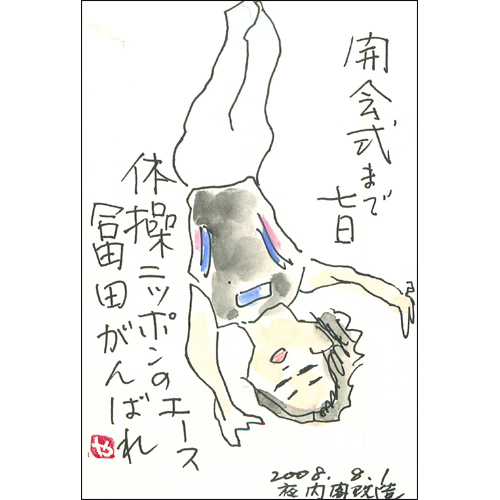 開会式まで
七日
体操ニッポンのエース
冨田がんばれ
や
2008.8.1